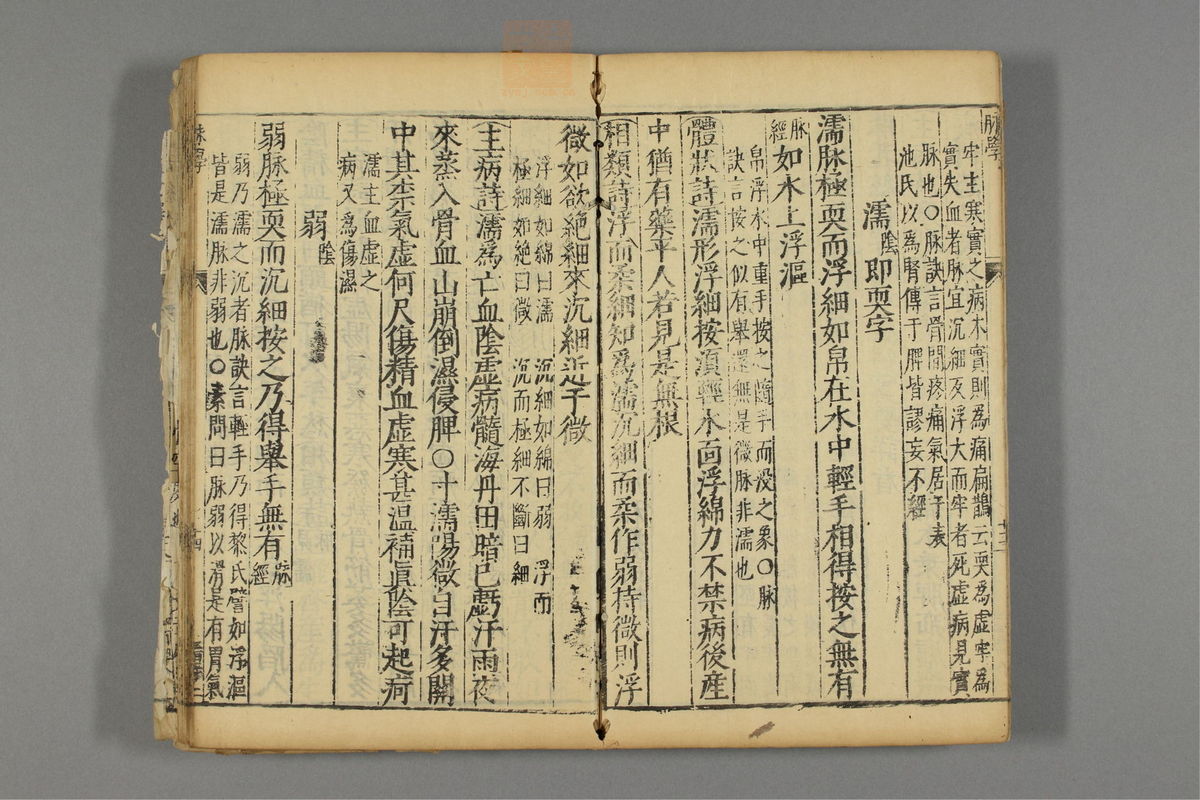 脉學
牢主寒實之病木實則為痛扁鵲云耎為虛牢為
實失血者脉宜沉細反浮大而牢者死虛病見實
脉也○脉訣言骨間疼痛氣居于表
池氏以為腎傳于脾皆謬妄不經
濡 陰 即耎字
濡脉極耎而浮細如帛在水中輕手相得按之無有
脉經
如水上浮漚
帛浮水中重手按之隨手而沒之象○脉
訣言按之似有舉還無是微脉非濡也
體狀詩濡形浮細按須輕水面浮綿力不禁病後産
中猶有藥平人若見是無根
相類詩浮而柔細知為濡沉細而柔作弱持微則浮
微如欲絕細來沉細近于微
浮細如綿曰濡 沉細如綿曰弱 浮而
極細如絕曰微 沉而極細不斷曰細
主病詩濡為亡血陰虛病髓海丹田暗已虧汗雨夜
來蒸入骨血山崩倒濕侵脾○寸濡陽微自汗多關
中其柰氣虛何尺傷精血虛寒甚溫補真陰可起疴
濡主血虛之
病又為傷濕
弱 陰
弱脉極耎而沉細按之乃得舉手無有
脉經
弱乃濡之沉者脉訣言輕手乃得黎氏譬如浮漚
皆是濡脉非弱也○素問曰脉弱以滑是有胃氣